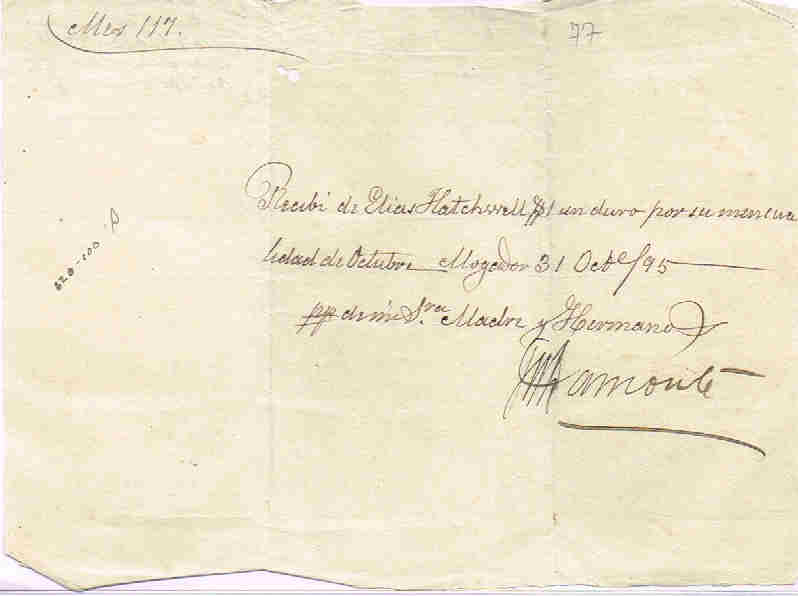 Mes 117.
77
Recibi de Elias Hatchwell $1 un duro por su mensua
lidad de Octubre Mogador 31 Octe/95
pp de mi Sra. Madre y Hermano
320-100.P